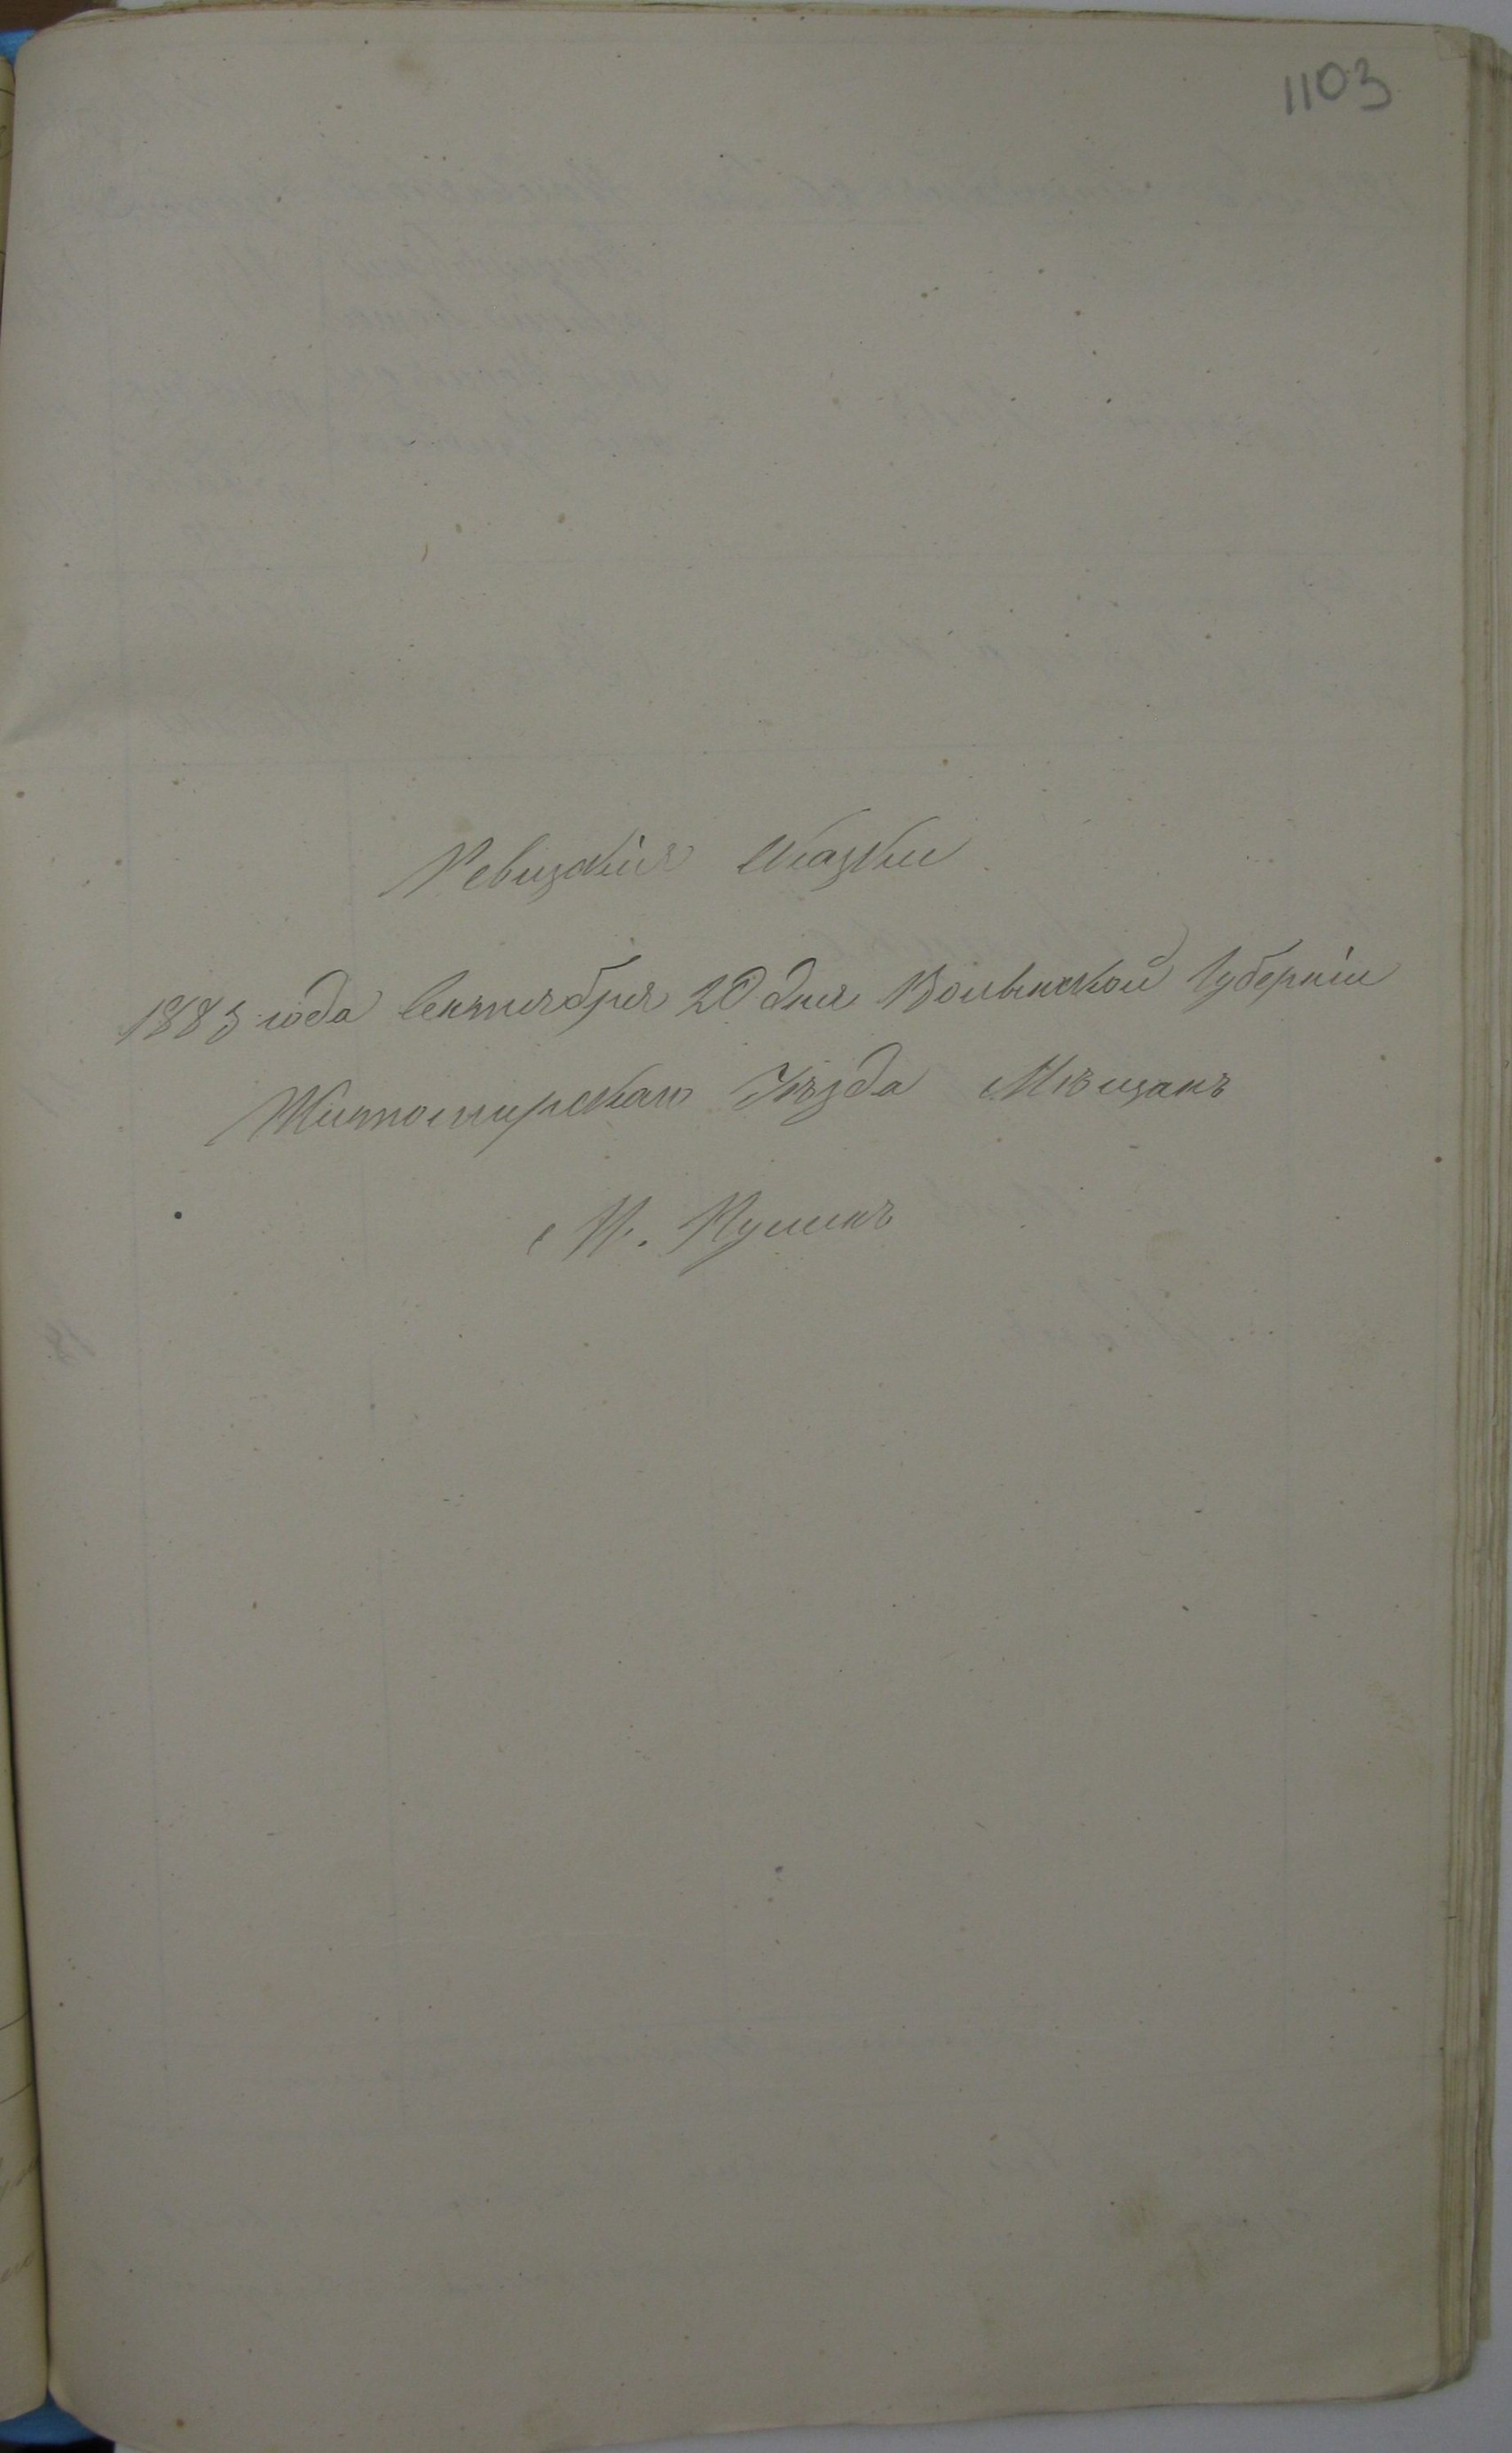 1103
Ревизскія Сказки
1883 года Сентября 20 дня Волынской Губерніи
Житомирскаго Уѣзда Мѣщанъ
М. Пулинъ